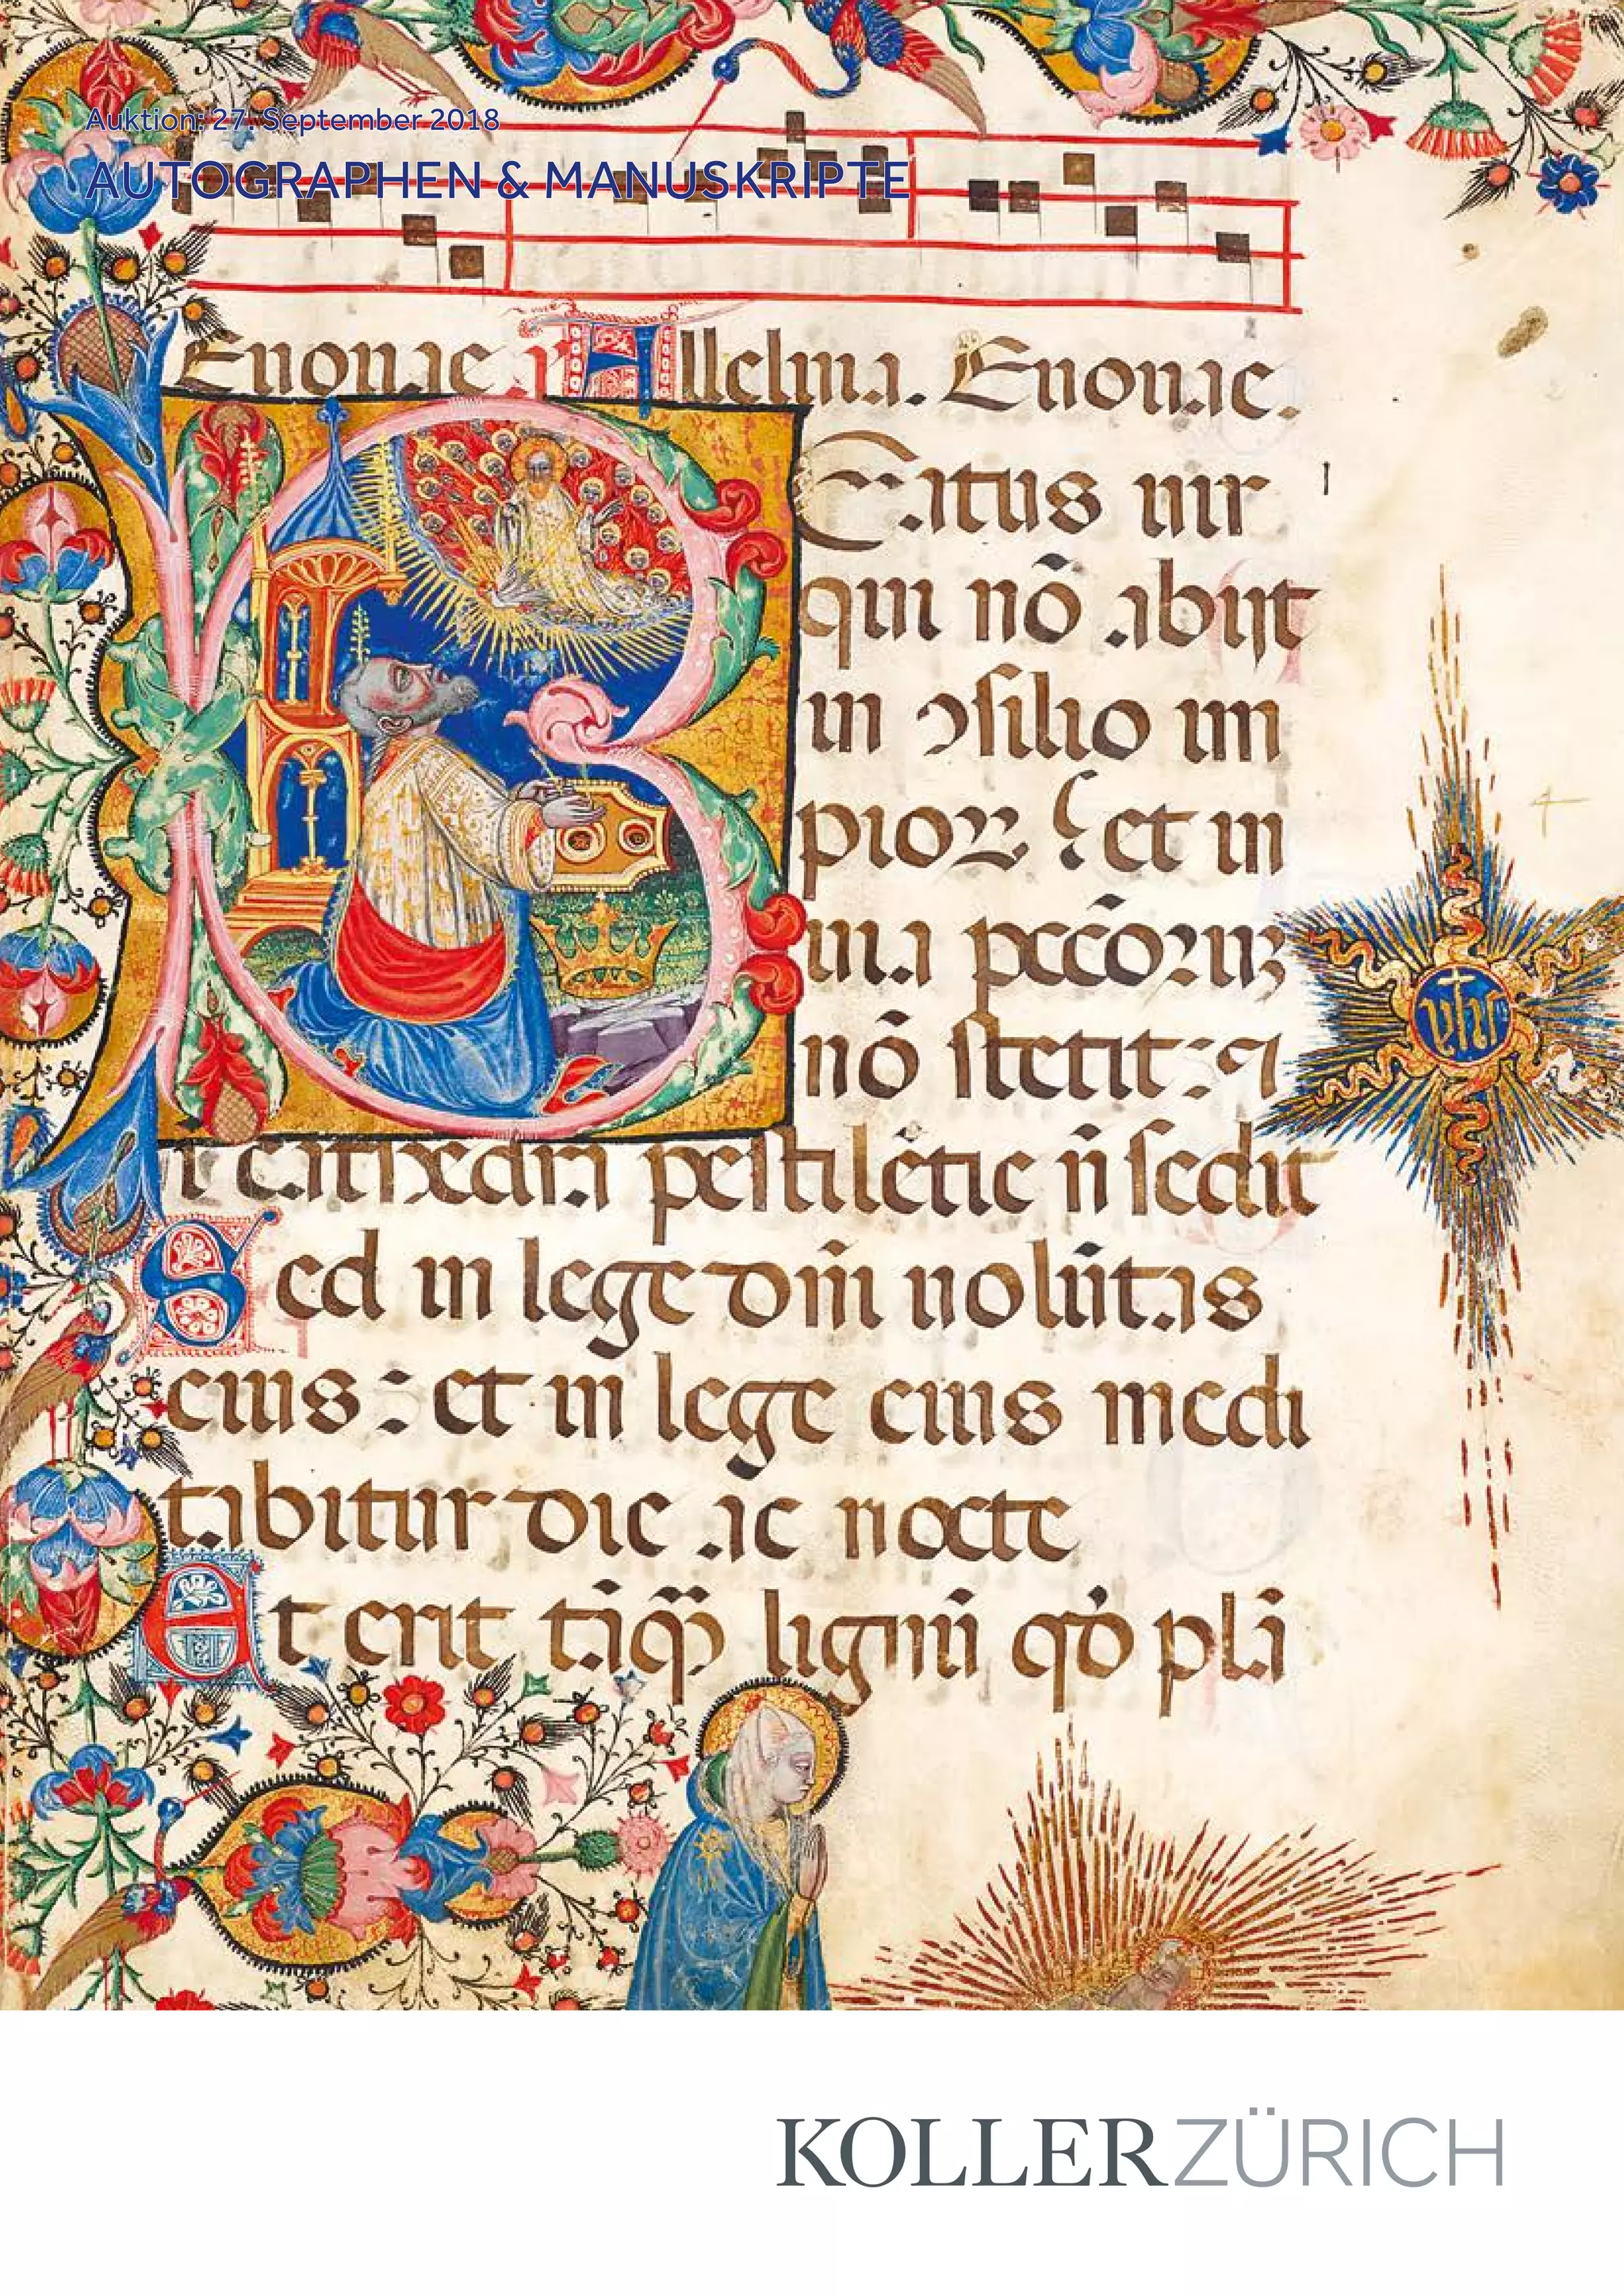 Auktion: 27. September 2018
AUTOGRAPHEN & MANUSKRIPTE
Euouae Alleluia. Euouae.
BEatus uir
qui nō abijt
in ꝯsilio im
pioꝝ et in
uia pccōruꝫ
nō stetit: ⁊
ī cathedra pestilētie n̄ sedit
Sed in lege dn̄i uolūtas
eius: et in lege eius medi
tabitur die ac nocte
Et erit tāq̄ lignū qđ plā
yhs
KOLLERZÜRICH